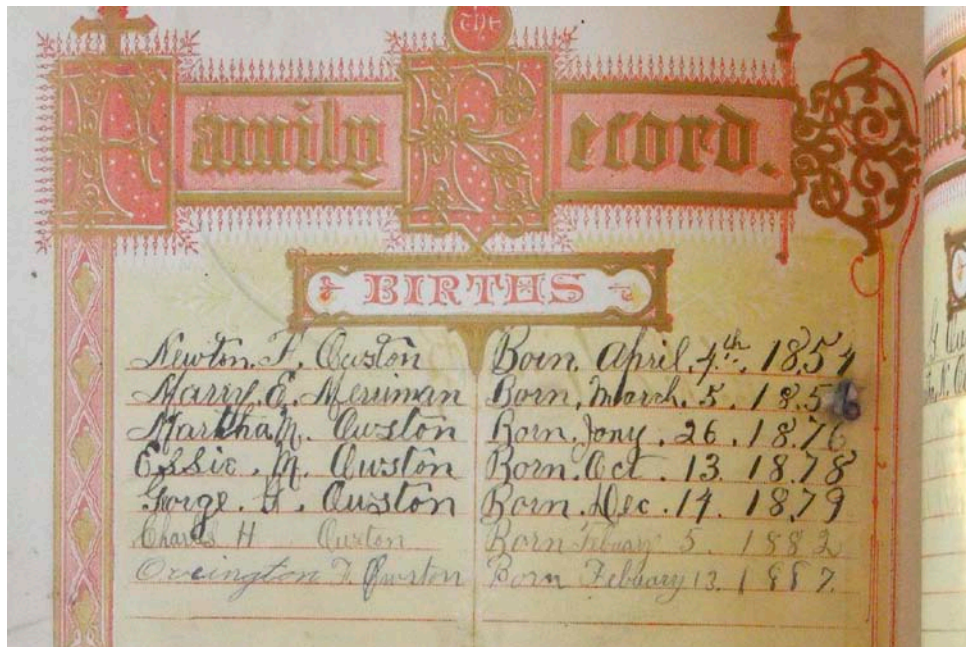 THE
Family Record.
BIRTHS
Newton. F. Owston Born. April. 4th. 1854
Marry. E. Merriman Born. March. 5. 1856
Martha M. Owston Born. Jany. 26. 1876
Essie. M. Owston Born. Oct. 13. 1878
George. F. Owston Born. Dec. 14. 1879
Charles H Owston Born Febuary 5. 1882
Ovington F Owston Born Febuary 13. 1887.